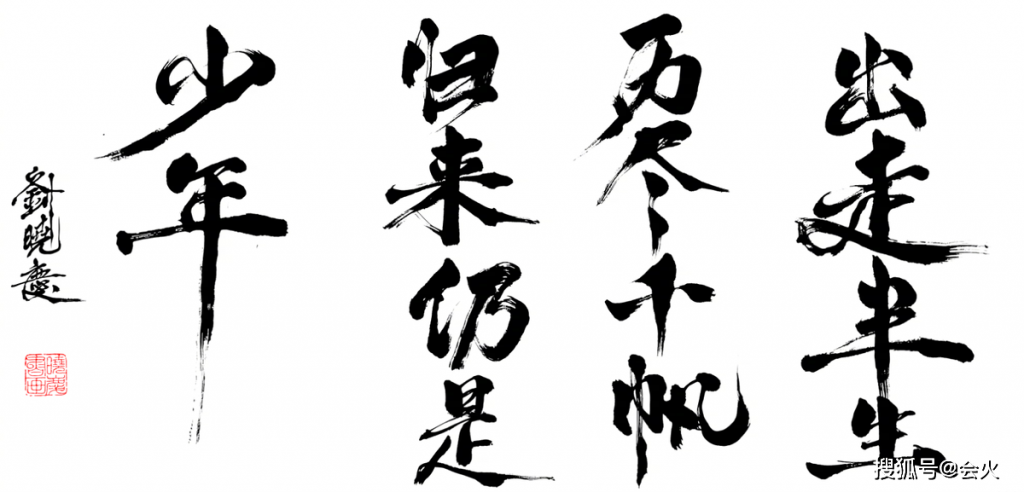 出走半生
历尽千帆
归来仍是
少年
劉曉慶
搜狐号@会火